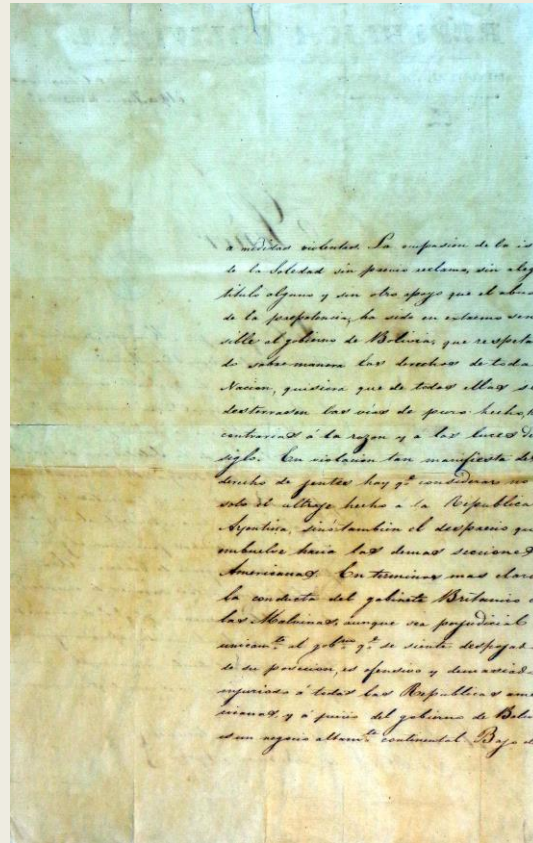 a medidas violentas. La ocupasion de la is
de la Soledad sin previo reclamo, sin aleg
titulo alguno y sin otro apoyo que el abus
de la prepotencia, ha sido en estremo sen
sible al gobierno de Bolivia, que respeta
do sobre manera los derechos de toda
Nacion, quisiera que de todas ellas se
desterrasen las vias de puro hecho,
contrarias á la razon y a las luces de
siglo. En violacion tan manifiesta de
derecho de gentes hay qe considerar no
solo el ultraje hecho a la Republica
Argentina, sino tambien el desprecio que
embuelve hacia las demas secciones
Americanas. En terminos mas claro
la conducta del gabinete Britanico
las Malvinas, aunque sea perjudicial
unicamte al gobno qe se siente despojad
de su posecion, es ofensivo y demasiad
injurioso á todas las Republicas ame
ricanas y á juicio del gobierno de Boliv
es un negocio altamte continental. Bajo